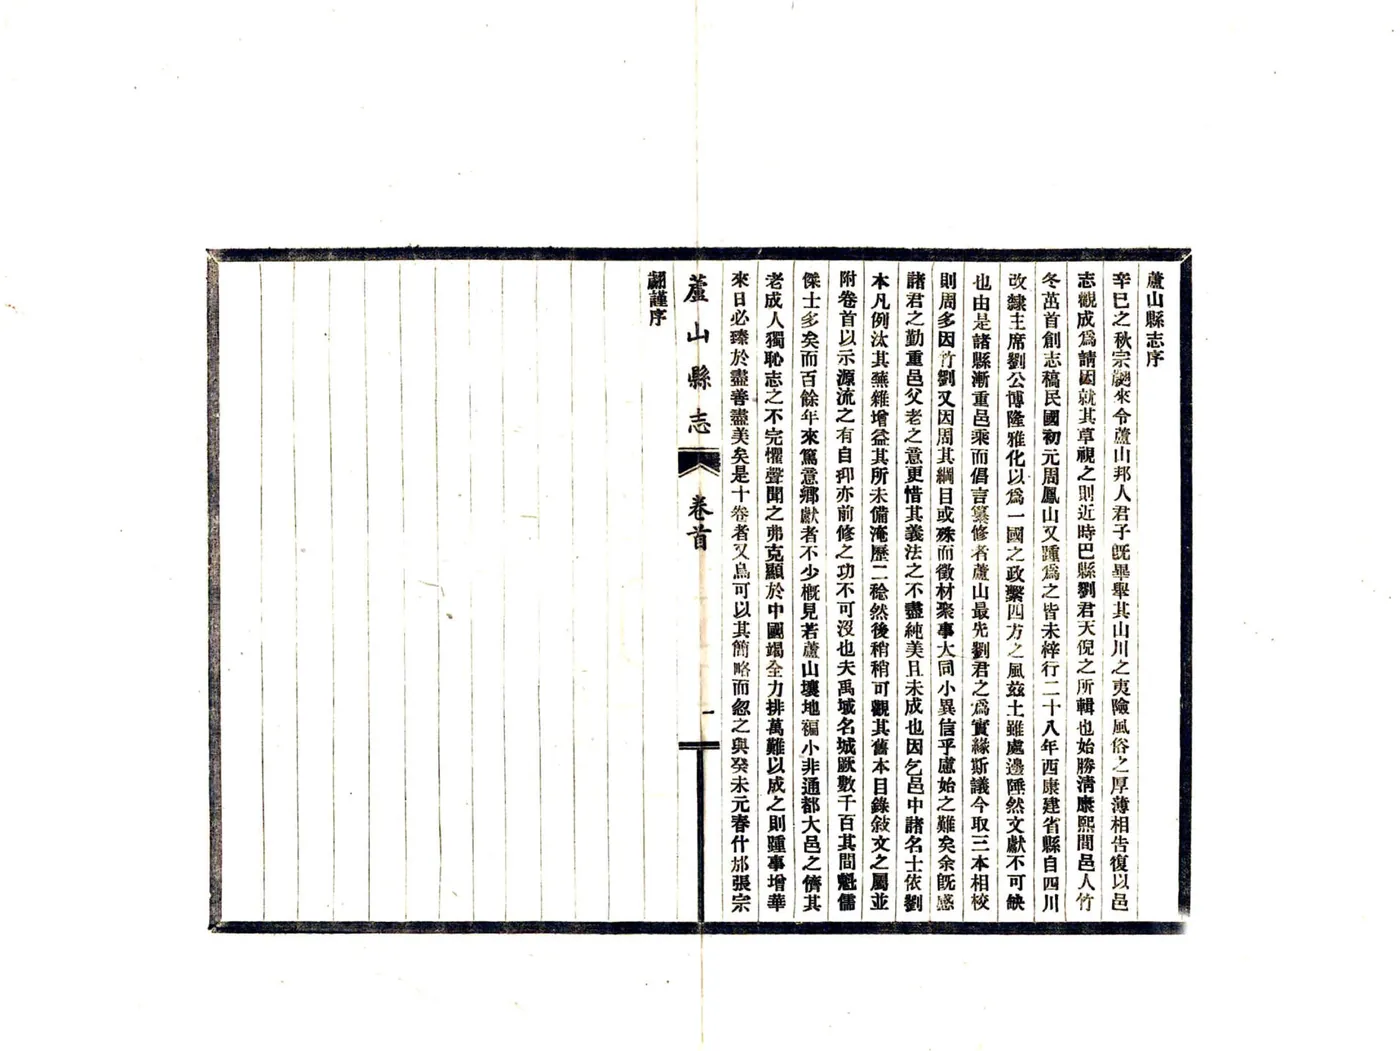 蘆山縣志序
辛巳之秋宗翽來令蘆山邦人君子旣畢舉其山川之夷險風俗之厚薄相告復以邑
志觀成爲請因就其草視之則近時巴縣劉君天倪之所輯也始勝清康熙間邑人竹
冬茁首創志稿民國初元周鳳山又踵爲之皆未梓行二十八年西康建省縣自四川
改隸主席劉公博隆雅化以爲一國之政繫四方之風茲土雖處邊陲然文獻不可缺
也由是諸縣漸重邑乘而倡言纂修者蘆山最先劉君之爲實緣斯議今取三本相校
則周多因竹劉又因周其綱目或殊而徵材聚事大同小異信乎慮始之難矣余旣感
諸君之勤重邑父老之意更惜其義法之不盡純美且未成也因乞邑中諸名士依劉
本凡例汰其蕪雜增益其所未備淹歷二稔然後稍稍可觀其舊本目錄敍文之屬並
附卷首以示源流之有自抑亦前修之功不可沒也夫禹域名城厥數千百其間魁儒
傑士多矣而百餘年來篤意鄉獻者不少槪見若蘆山壤地褊小非通都大邑之儕其
老成人獨恥志之不完懼聲聞之弗克顯於中國竭全力排萬難以成之則踵事增華
來日必臻於盡善盡美矣是十卷者又烏可以其簡略而忽之與癸未元春什邡張宗
翽謹序
蘆山縣志
卷首
一